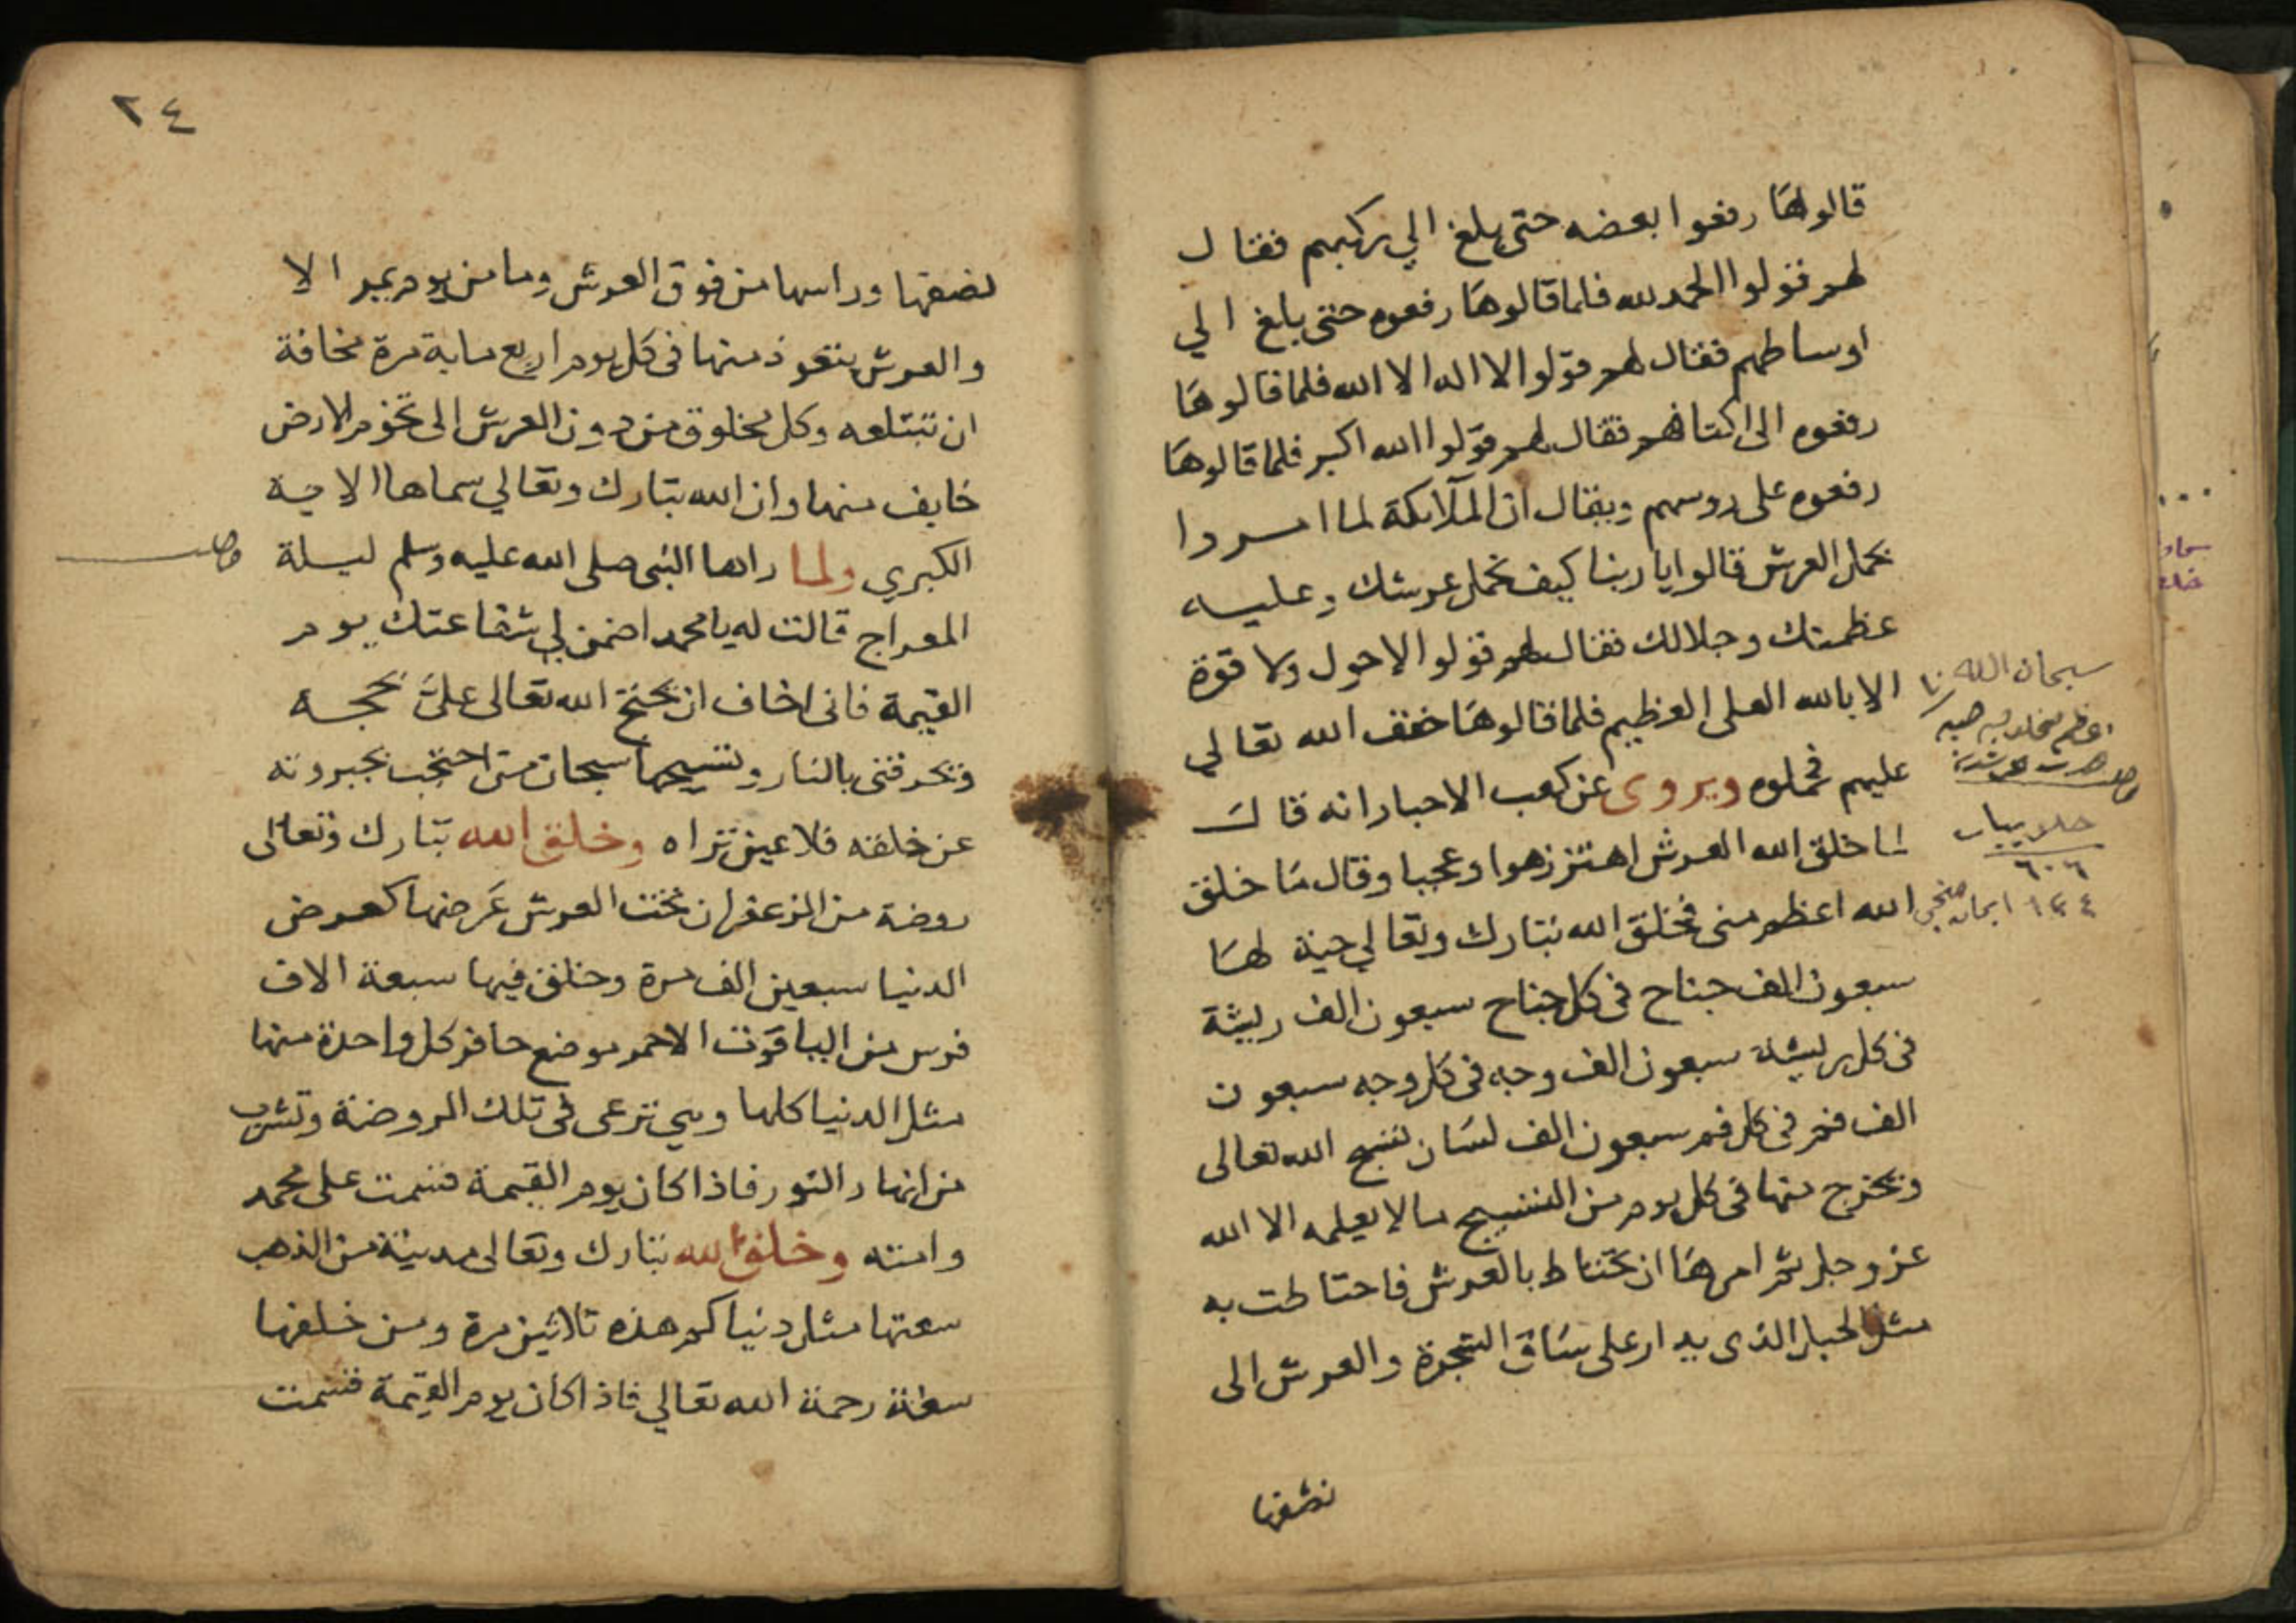 قالوها رفعوا بعضه حتى بلغ الي ركبهم فقال
لهم قولوا الحمد لله فلما قالوها رفعوه حتى بلغ الي
اوساطهم فقال لهم قولوا لا اله الا الله فلما قالوها
رفعوه الى اكتافهم فقال لهم قولوا الله اكبر فلما قالوها
رفعوه على روسهم ويقال ان الملائكة لما امروا
بحمل العرش قالوا يا ربنا كيف نحمل عرشك وعليه
عظمتك وجلالك فقال لهم قولوا لا حول ولا قوة
الا بالله العلى العظيم فلما قالوها خفف الله تعالي
عليهم فحملوه ويروى عن كعب الاحبار انه قال
لما خلق الله العرش اهتز زهوا وعجبا وقال ما خلق
الله اعظم منى فخلق الله تبارك وتعالي حية لها
سبعون الف جناح فى كل جناح سبعون الف ريشة
فى كل ريشة سبعون الف وجه فى كل وجه سبعون
الف فم فى كل فم سبعون الف لسان تسبح الله تعالى
ويخرج منها فى كل يوم من التسبيح مالا يعلمه الا الله
عز وجل ثم امرها ان تحتاط بالعرش فاحتاطت به
مثل الحبل الذى يدار على ساق الشجرة والعرش الى
نصفها
سبحان الله
٦٠٦
١٤٤
٢٤
نصفها وراسها من فوق العرش وما من يوم يمر الا
والعرش يتعوذ منها فى كل يوم اربع ماية مرة مخافة
ان تبتلعه وكل مخلوق من دون العرش الى تخوم الارض
خايف منها وان الله تبارك وتعالي سماها الاية
الكبري ولما راها النبى صلى الله عليه وسلم ليلة
المعراج قالت له يا محمد اضمن لي شفاعتك يوم
القيمة فانى اخاف ان يحتج الله تعالى على بحجة
ويحرقنى بالنار وتسبيحها سبحان من احتجب بجبروته
عن خلقه فلا عين تراه وخلق الله تبارك وتعالى
روضة من الزعفران تحت العرش عرضها كعرض
الدنيا سبعين الف مرة وخلق فيها سبعة الاف
فرس من الياقوت الاحمر موضع حافر كل واحدة منها
مثل الدنيا كلها وهي ترعى فى تلك الروضة وتشرب
من انهار النور فاذا كان يوم القيمة قسمت على محمد
وامته وخلق الله تبارك وتعالى مدينة من الذهب
سعتها مثل دنياكم هذه ثلاثين مرة ومن خلفها
سعة رحمة الله تعالي فاذا كان يوم القيمة قسمت